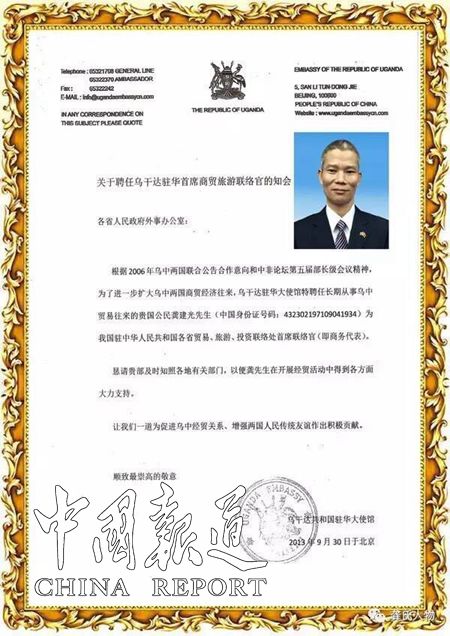 Telephone : 65321708 GENERAL LINE
65322370 AMBASSADOR
Fax : 65322242
E-MAIL : info@ugandaembassycn.com
IN ANY CORRESPONDENCE ON
THIS SUBJECT PLEASE QUOTE
THE REPUBLIC OF UGANDA
EMBASSY OF THE REPUBLIC OF UGANDA
5, SAN LI TUN DONG JIE
BEIJING, 100600
PEOPLE'S REPUBLIC OF CHINA
Website : www.ugandaembassycn.com
关于聘任乌干达驻华首席商贸旅游联络官的知会
各省人民政府外事办公室：
根据 2006 年乌中两国联合公告合作意向和中非论坛第五届部长级会议精神，
为了进一步扩大乌中两国商贸经济往来，乌干达驻华大使馆特聘任长期从事乌中
贸易往来的贵国公民龚建光先生（中国身份证号码：432302197109041934）为
我国驻中华人民共和国各省贸易、旅游、投资联络处首席联络官（即商务代表）。
恳请贵部及时知照各地有关部门，以便龚先生在开展经贸活动中得到各方面
大力支持。
让我们一道为促进乌中经贸关系、增强两国人民传统友谊作出积极贡献。
顺致最崇高的敬意
UGANDA EMBASSY
乌干达共和国驻华大使馆
2013 年 9 月 30 日于北京
中国报道
CHINA REPORT
龚氏人物